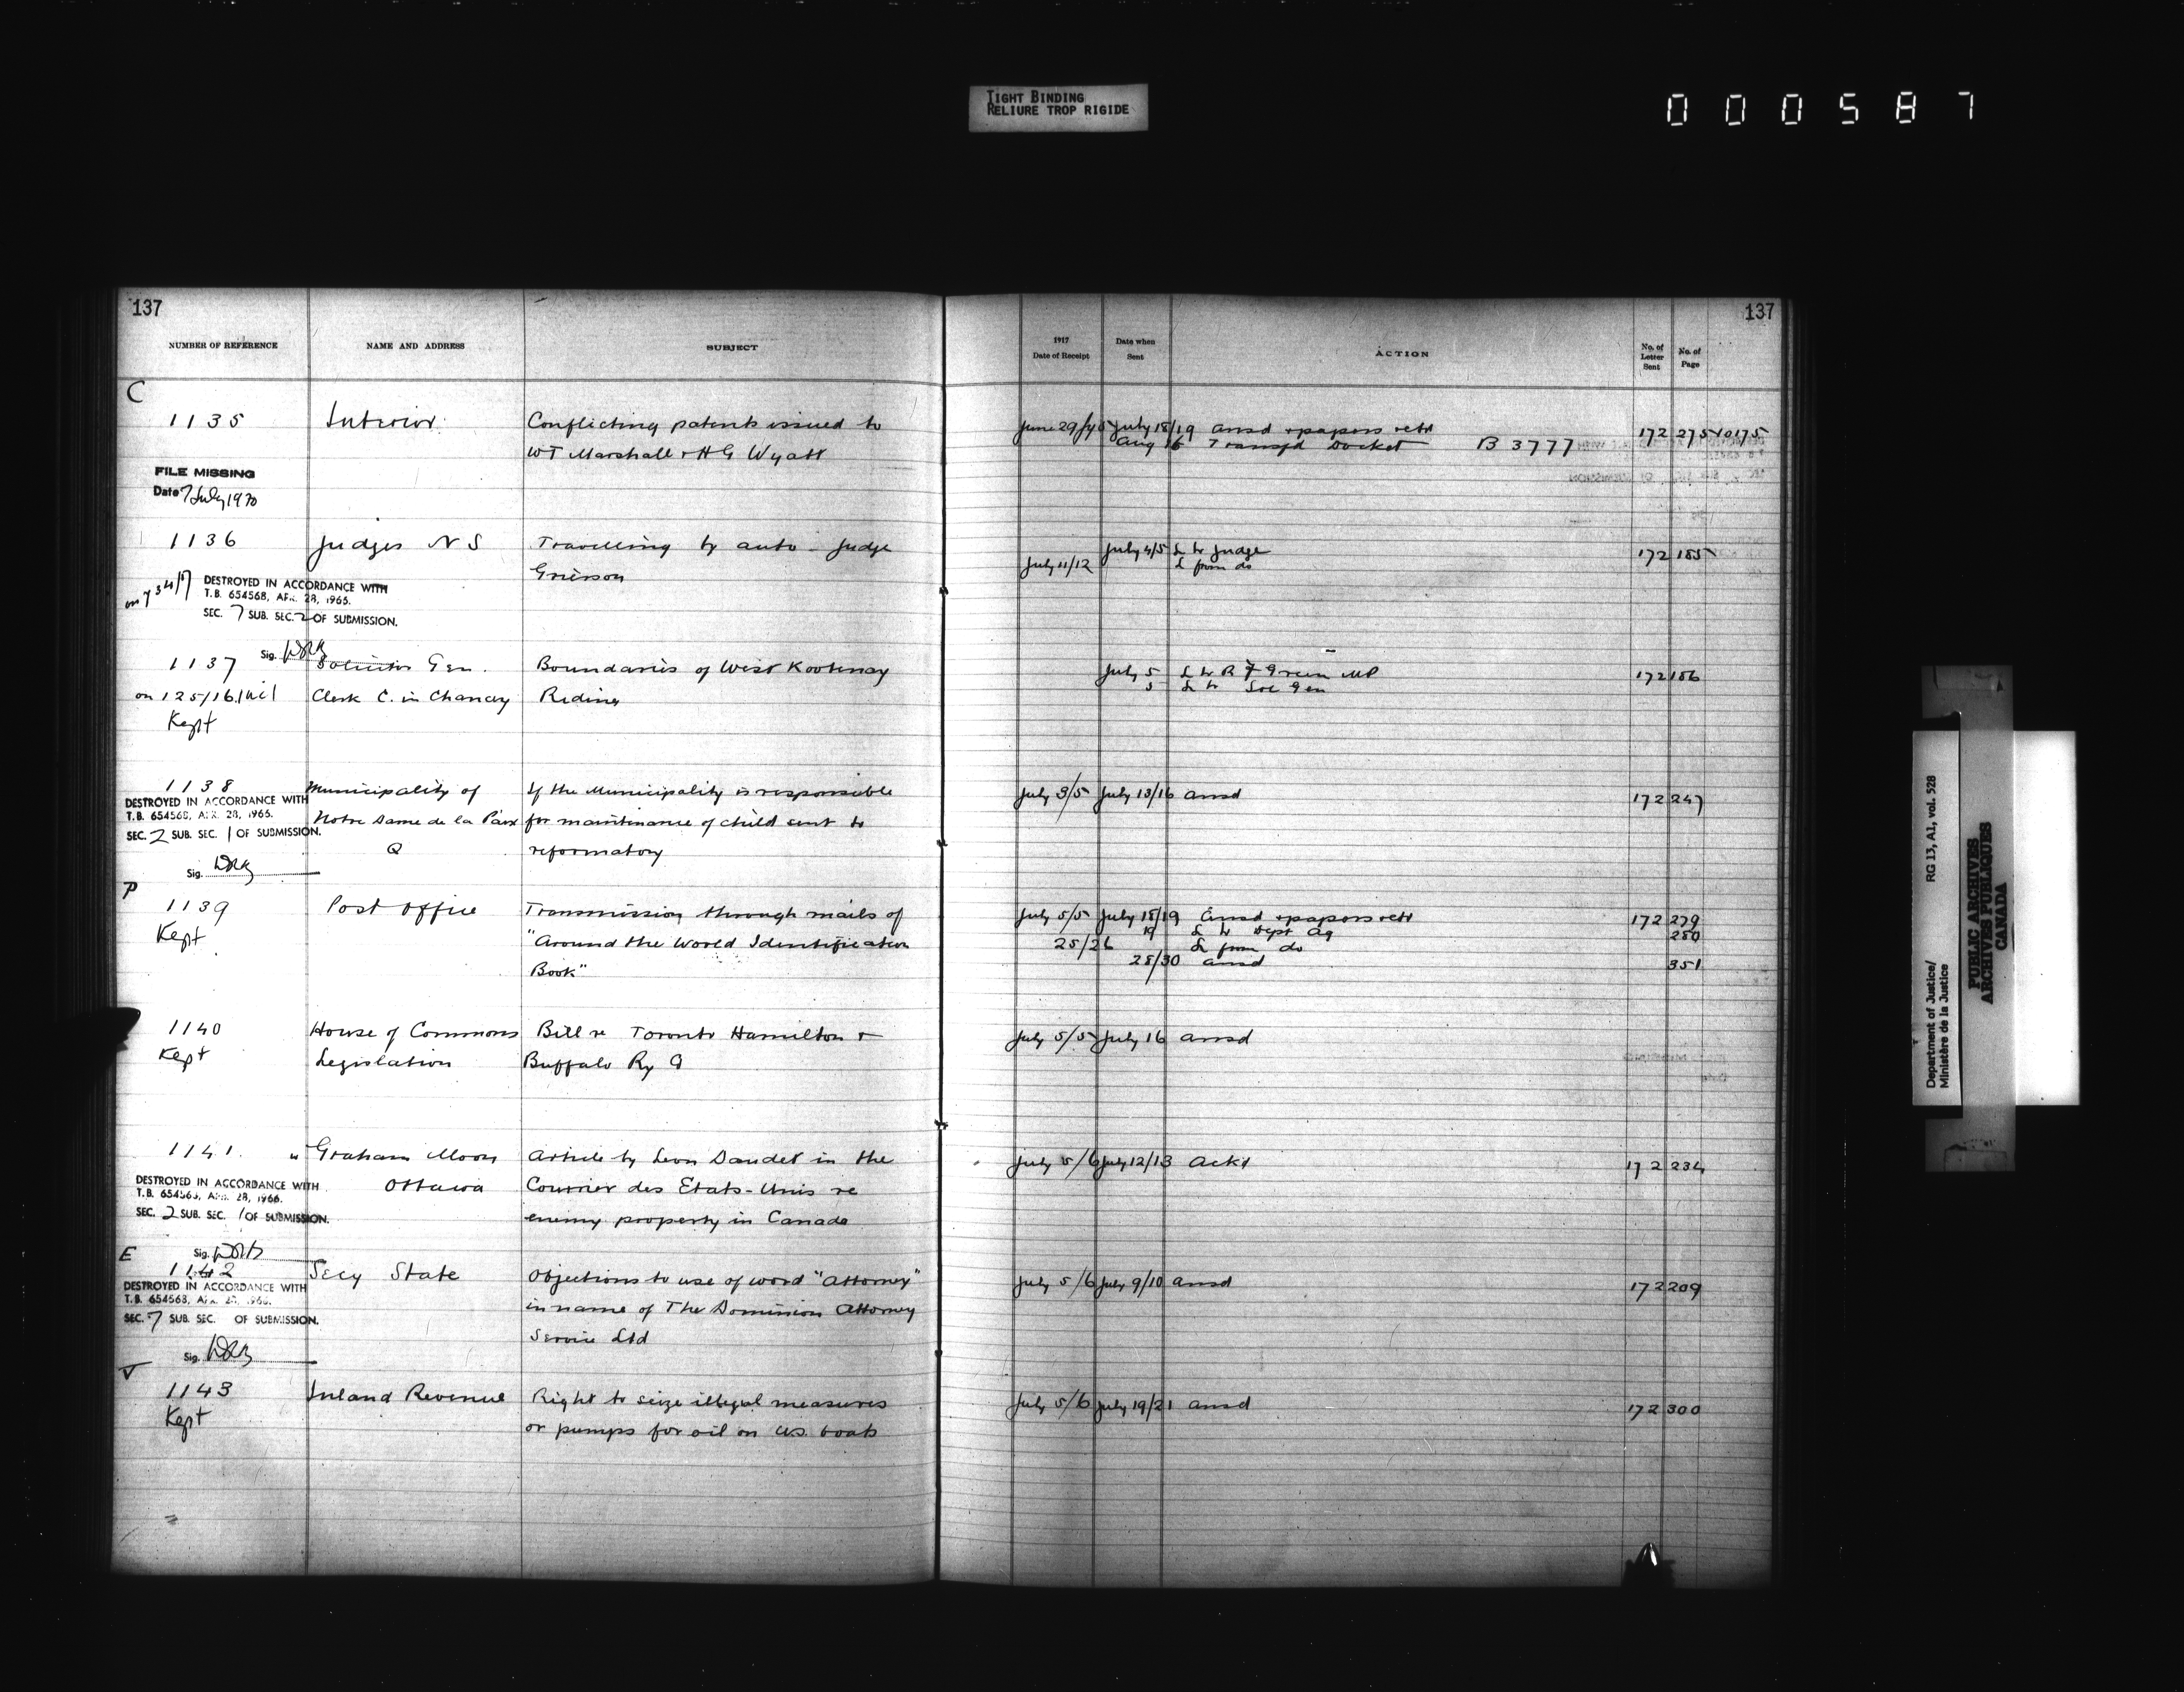 TIGHT BINDING
RELIURE TROP RIGIDE
000587
137
137
NUMBER OF REFERENCE
NAME AND ADDRESS
SUBJECT
1917
Date of Receipt
Date when
Sent
ACTION
No. of
Letter
Sent
No. of
Page
C
1135 Interior Conflicting patents issued to
WT Marshall + HG Wyatt
June 29/ July 18/19 ansd + papers retd 172 275
Aug 16 Transfd Docket B 3777
FILE MISSING
Date 7 July 1970
1136 Judges N S Travelling by auto - Judge
Grierson
July 4/5 L to Judge 172 185
July 11/12 L from do
DESTROYED IN ACCORDANCE WITH
T.B. 654568, APR. 28, 1966.
SEC. 7 SUB. SEC. 2 OF SUBMISSION.
Sig. DRB
1137 Solicitor Gen. Boundaries of West Kootenay
on 125/16 Clerk C. in Chancy Riding
Kept
July 5 L to R F Green MP 172 186
5 L to Sol Gen
1138 Municipality of If the Municipality is responsible
Notre Dame de la Paix for maintenance of child sent to
Q reformatory
July 3/5 July 13/16 ansd 172 247
DESTROYED IN ACCORDANCE WITH
T.B. 654568, APR. 28, 1966.
SEC. 2 SUB. SEC. 1 OF SUBMISSION.
Sig. DRB
P
1139 Post Office Transmission through mails of
Kept "Around the World Identification
Book"
July 5/5 July 18/19 Ansd + papers retd 172 279
19 L to Dept Ag 280
25/26 L from do
28/30 ansd 351
1140 House of Commons Bill re Toronto Hamilton +
Kept Legislation Buffalo Ry Co
July 5/5 July 16 ansd
1141. " Graham Moon Article by Leon Daudet in the
Ottawa Courrier des Etats-Unis re
enemy property in Canada
July 5/6 July 12/13 Ackd 172 234
DESTROYED IN ACCORDANCE WITH
T.B. 654568, APR. 28, 1966.
SEC. 2 SUB. SEC. 1 OF SUBMISSION.
Sig. DRB
E
1142 Secy State Objections to use of word "Attorney"
in name of The Dominion Attorney
Service Ltd
July 5/6 July 9/10 ansd 172 209
DESTROYED IN ACCORDANCE WITH
T.B. 654568, APR. 28, 1966.
SEC. 7 SUB. SEC. OF SUBMISSION.
Sig. DRB
V
1143 Inland Revenue Right to seize illegal measures
Kept or pumps for oil on US. boats
July 5/6 July 19/21 ansd 172 300
Department of Justice/
Ministère de la Justice
RG 13, A1, vol. 528
PUBLIC ARCHIVES
ARCHIVES PUBLIQUES
CANADA